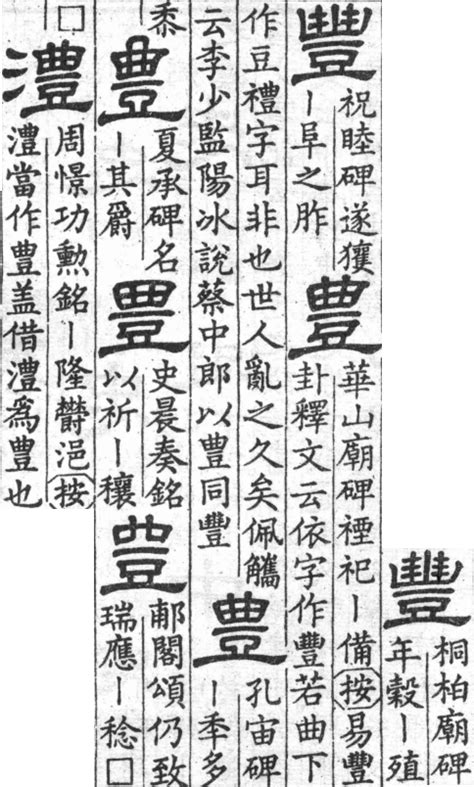 豐
桐柏廟碑
年穀丨殖
豐
祝睦碑遂獲
丨阜之胙
豊
華山廟碑禋祀丨備按易豐
卦釋文云依字作豐若曲下
作豆禮字耳非也世人亂之久矣佩觿
云李少監陽冰說蔡中郎以豊同豐
豊
孔宙碑
丨秊多
黍
豊
夏承碑名
丨其爵
豊
史晨奏銘
以祈丨穰
豊
郙閣頌仍致
瑞應丨稔□
□
澧
周憬功勳銘丨隆鬱浥按
澧當作豊盖借澧爲豊也